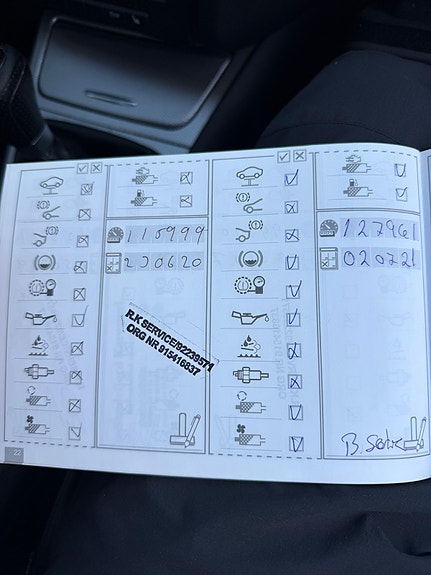 110999
230620
R.K SERVICE/92239571
ORG NR 915416837
22
127961
020721